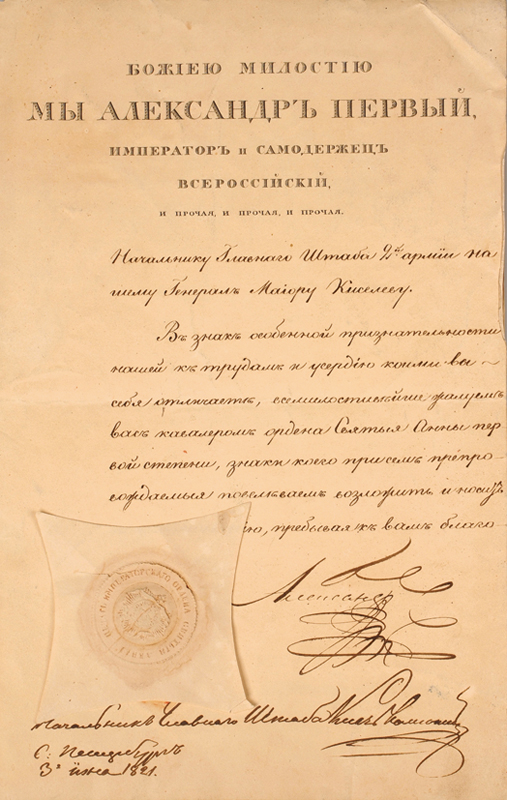 БОЖІЕЮ МИЛОСТІЮ
МЫ АЛЕКСАНДРЪ ПЕРВЫЙ,
ИМПЕРАТОРЪ и САМОДЕРЖЕЦЪ
ВСЕРОССІЙСКІЙ,
И ПРОЧАЯ, И ПРОЧАЯ, И ПРОЧАЯ.
Начальнику Главнаго Штаба 2й арміи на
шему Генералъ Маіору Киселеву.
Въ знакъ особенной признательности
нашей къ трудамъ и усердію коими вы
себя отличаете, всемилостивѣйше жалуемъ
васъ кавалеромъ ордена Святыя Анны пер
вой степени, знаки коего при семъ препро
вождаемыя повелѣваемъ возложить и носить
пребывая къ вамъ благо-
Александръ
ИМПЕРАТОРСКАГО ОРДЕНА СВЯТЫЯ АННЫ
Начальникъ Главнаго Штаба Князь Волконскій
С: Петербургъ
3º іюня 1821.